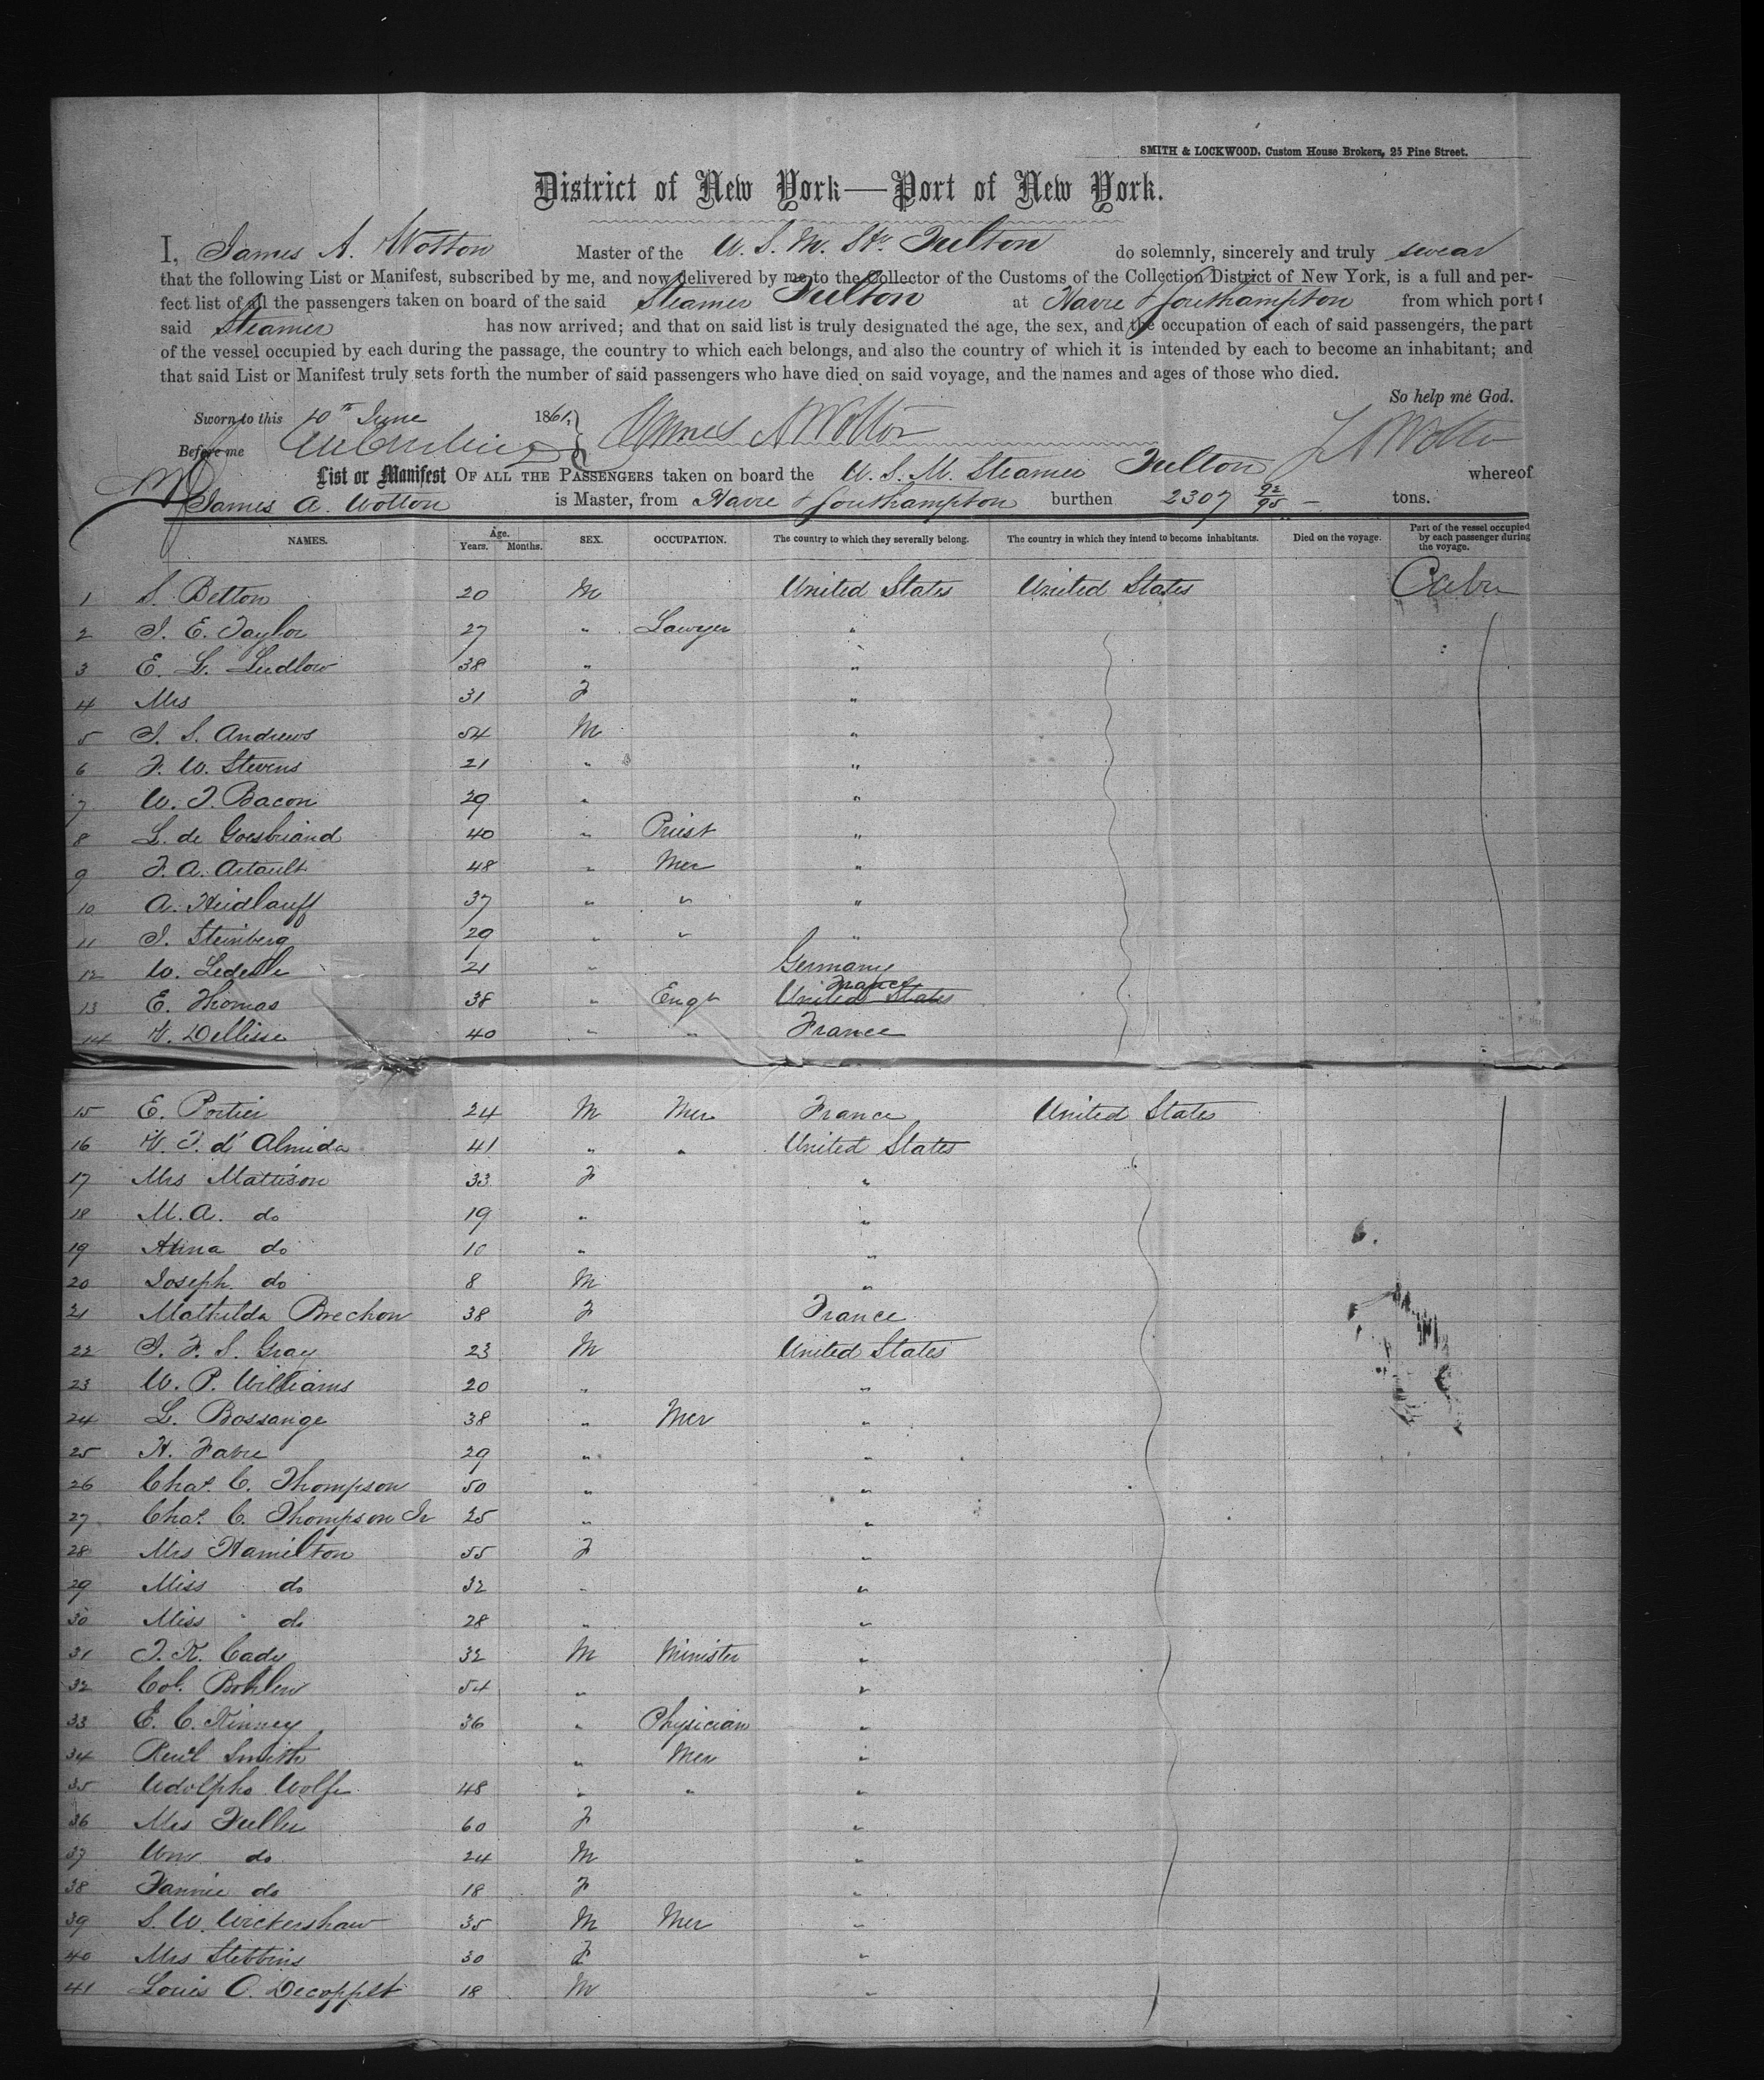 SMITH & LOCKWOOD, Custom House Brokers, 25 Pine Street.
District of New York—Port of New York.
I, James A. Wotton Master of the U. S. M. Str. Fulton do solemnly, sincerely and truly swear
that the following List or Manifest, subscribed by me, and now delivered by me to the Collector of the Customs of the Collection District of New York, is a full and per-
fect list of all the passengers taken on board of the said Steamer Fulton at Havre & Southampton from which port
said Steamer has now arrived; and that on said list is truly designated the age, the sex, and the occupation of each of said passengers, the part
of the vessel occupied by each during the passage, the country to which each belongs, and also the country of which it is intended by each to become an inhabitant; and
that said List or Manifest truly sets forth the number of said passengers who have died on said voyage, and the names and ages of those who died.
So help me God.
Sworn to this 10th June 1861. James A Wotton
Before me J A Wotton
List or Manifest OF ALL THE PASSENGERS taken on board the U. S. M. Steamer Fulton whereof
James A. Wotton is Master, from Havre & Southampton burthen 2307 92/95 — tons.
NAMES. Age. Years. Months. SEX. OCCUPATION. The country to which they severally belong. The country in which they intend to become inhabitants. Died on the voyage. Part of the vessel occupied by each passenger during the voyage.
1 S. Betton 20 M United States United States Cabin
2 J. E. Taylor 27 " Lawyer "
3 E. L. Ludlow 38 " "
4 Mrs 31 F "
5 J. S. Andrews 54 M "
6 F. W. Stevens 21 " "
7 W. T. Bacon 29 " "
8 L. de Goesbriand 40 " Priest "
9 F. A. Artault 48 " Mer "
10 A. Heidlauff 37 " " "
11 J. Steinberg 29 " " "
12 W. Lederle 21 " Germany
13 E. Thomas 38 " Engr United States France
14 V. Dellisse 40 " " France
15 E. Portier 24 M Mer France United States
16 V. T. d'Almida 41 " " United States
17 Mrs Mattison 33 F "
18 M. A. do 19 " "
19 Anna do 10 " "
20 Joseph do 8 M "
21 Mathilda Brechon 38 F France
22 J. F. S. Gray 23 M United States
23 W. P. Williams 20 " "
24 L. Bossange 38 " Mer "
25 H. Favre 29 " "
26 Chas. C. Thompson 50 " "
27 Chas. C. Thompson Jr 25 " "
28 Mrs Hamilton 55 F "
29 Miss do 32 " "
30 Miss " do 28 " "
31 T. K. Cady 32 M Minister "
32 Col. Bohlen 54 " "
33 E. C. Kinney 36 " Physician "
34 Reul Smith " Mer "
35 Udolpho Wolfe 48 " " "
36 Mrs Fuller 60 F "
37 Wm do 24 M "
38 Fannie do 18 F "
39 S. W. Wickersham 35 M Mer "
40 Mrs Stebbins 30 F "
41 Louis C. Decoppet 18 M "